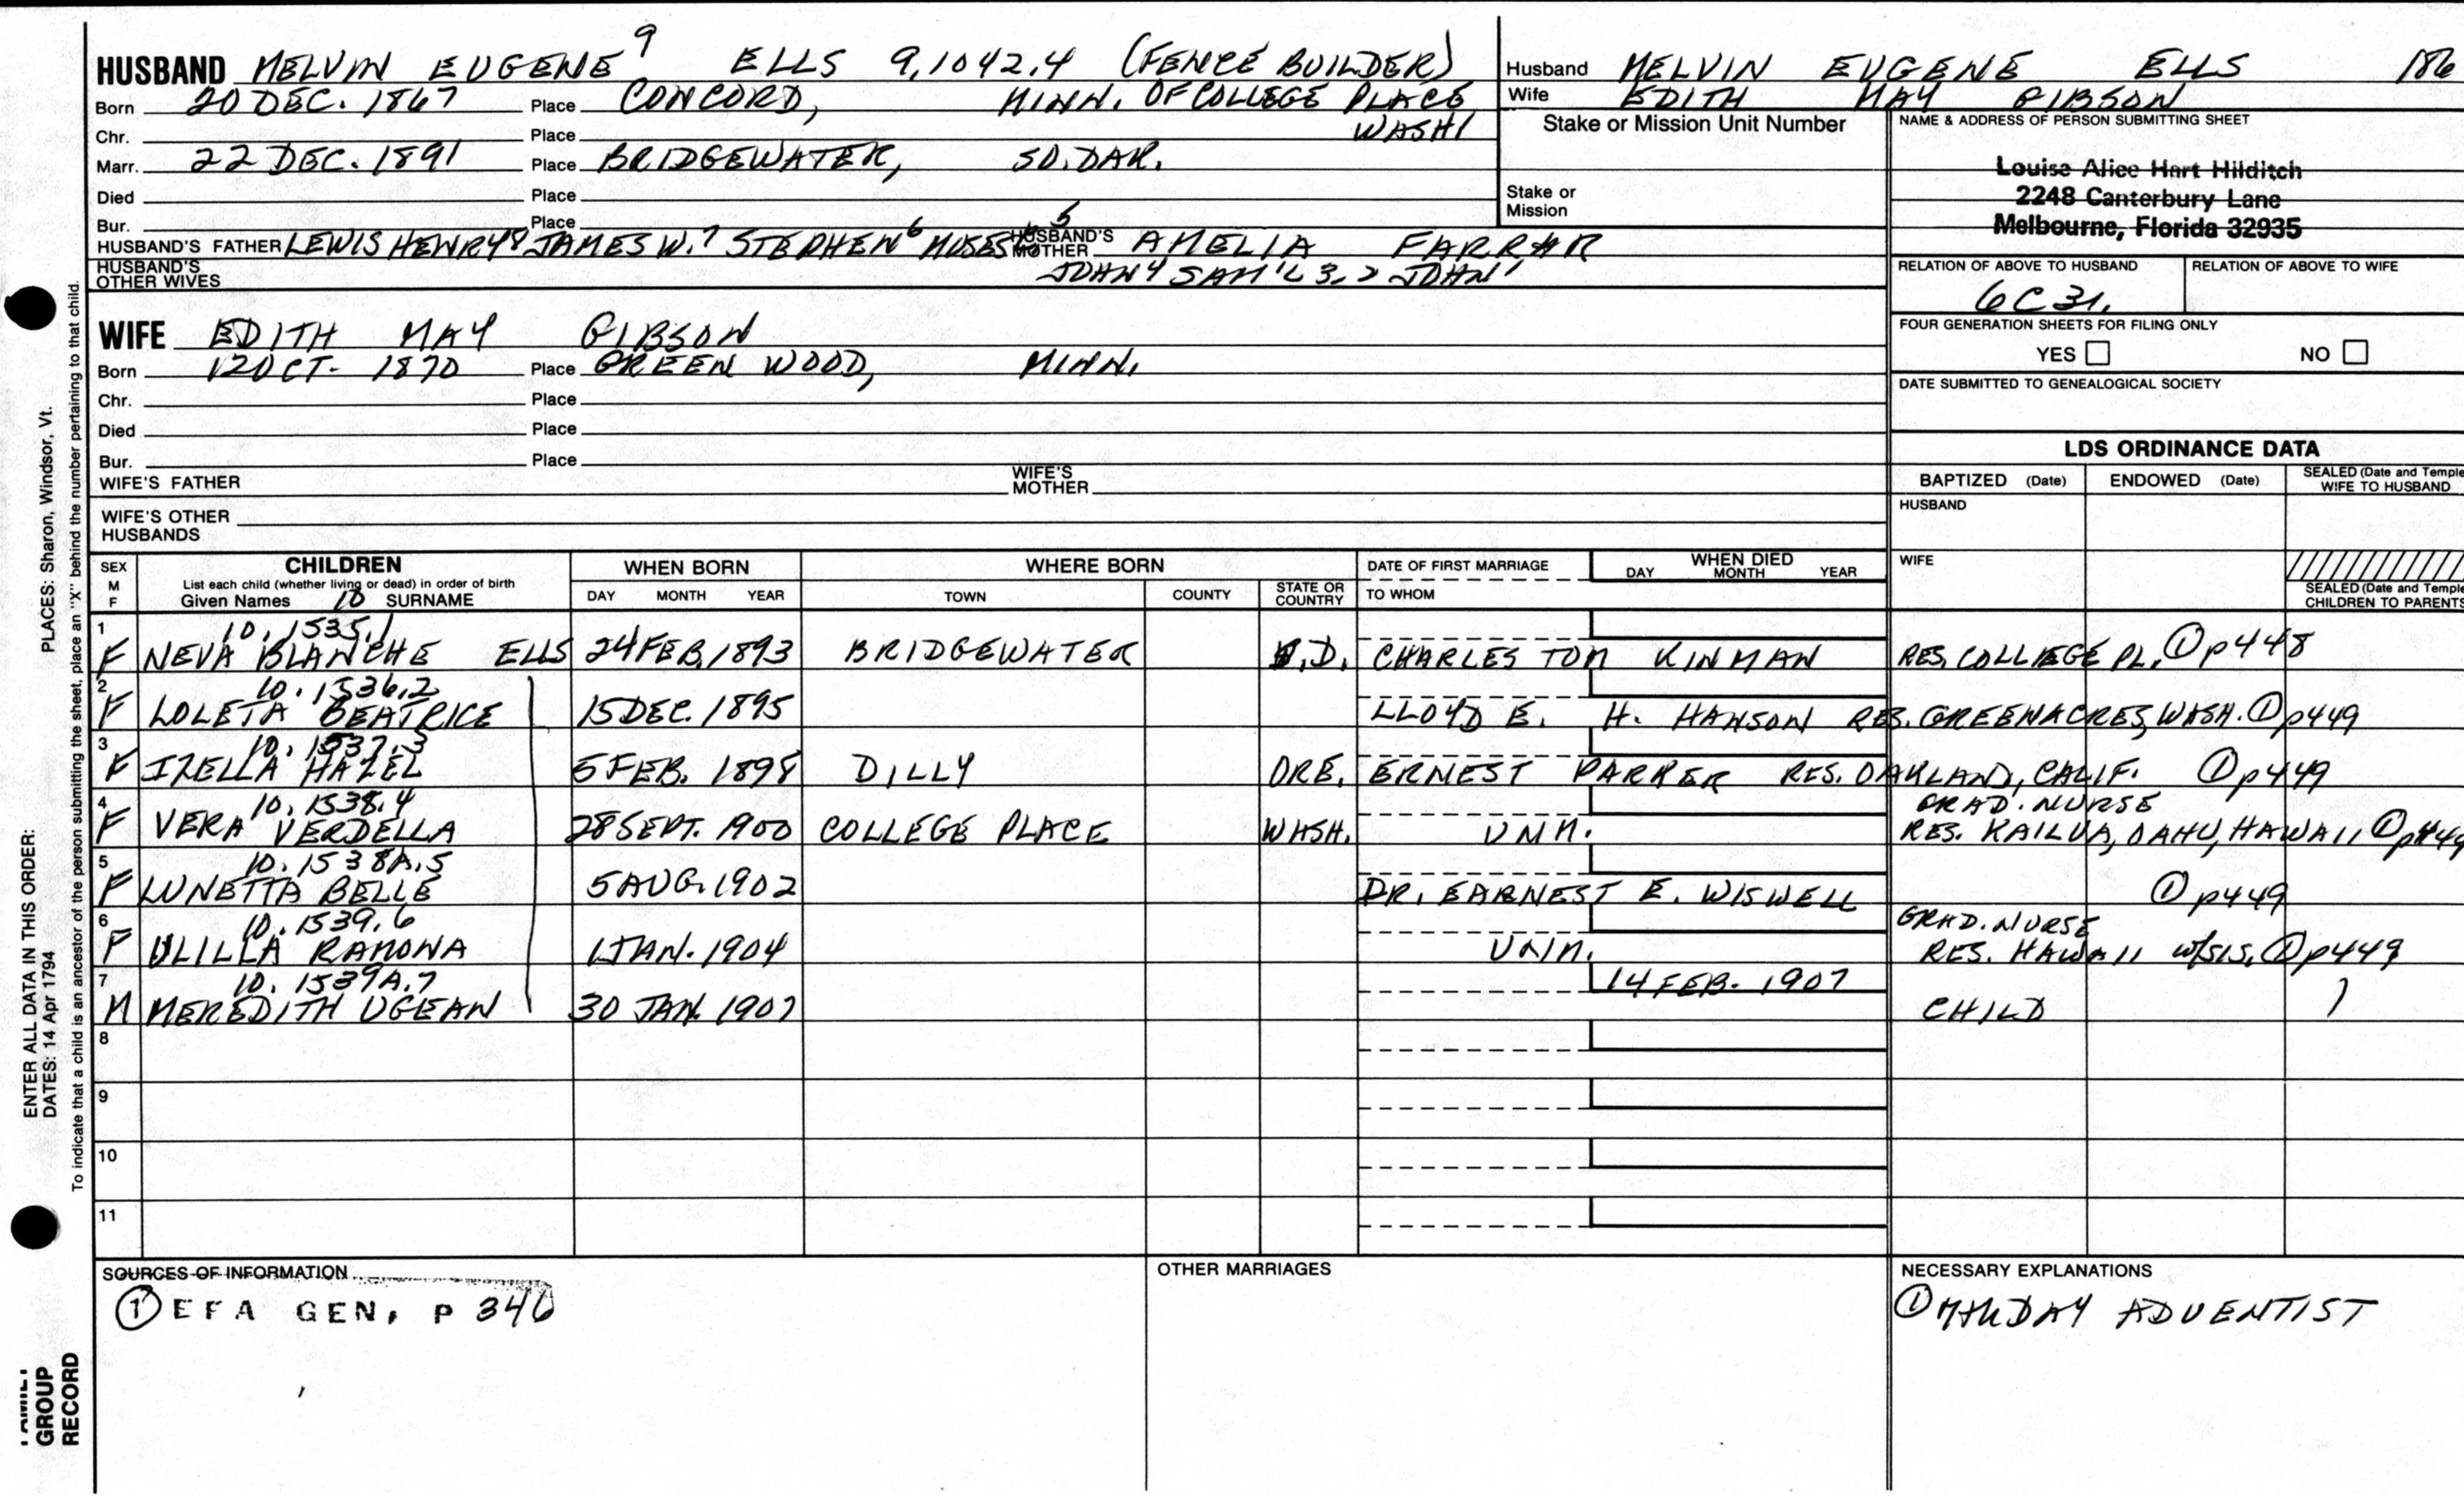 HUSBAND MELVIN EUGENE 9 ELLS 9,1042.4 (FENCE BUILDER)
Born 20 DEC. 1867 Place CONCORD, MINN. OF COLLEGE PLACE
Chr. Place WASH
Marr. 22 DEC. 1891 Place BRIDGEWATER, SO. DAK.
Died Place
Bur. Place
HUSBAND'S FATHER LEWIS HENRY 8 JAMES W. 7 STEPHEN 6 MOSES 5 HUSBAND'S MOTHER AMELIA FARRAR
HUSBAND'S OTHER WIVES JOHN 4 SAM'L 3, 2 JOHN 1
WIFE EDITH MAY GIBSON
Born 12 OCT. 1870 Place GREEN WOOD, MINN.
Chr. Place
Died Place
Bur. Place
WIFE'S FATHER WIFE'S MOTHER
WIFE'S OTHER HUSBANDS
Husband MELVIN EUGENE ELLS 186
Wife EDITH MAY GIBSON
Stake or Mission Unit Number
Stake or Mission
NAME & ADDRESS OF PERSON SUBMITTING SHEET
Louise Alice Hart Hilditch
2248 Canterbury Lane
Melbourne, Florida 32935
RELATION OF ABOVE TO HUSBAND RELATION OF ABOVE TO WIFE
6C31.
FOUR GENERATION SHEETS FOR FILING ONLY
YES NO
DATE SUBMITTED TO GENEALOGICAL SOCIETY
LDS ORDINANCE DATA
BAPTIZED (Date) ENDOWED (Date) SEALED (Date and Temple WIFE TO HUSBAND
HUSBAND
WIFE
SEALED (Date and Temple CHILDREN TO PARENTS
SEX M F CHILDREN WHEN BORN WHERE BORN DATE OF FIRST MARRIAGE WHEN DIED
List each child (whether living or dead) in order of birth
Given Names 10 SURNAME DAY MONTH YEAR TOWN COUNTY STATE OR COUNTRY TO WHOM DAY MONTH YEAR
1 10.1535.1
F NEVA BLANCHE ELLS 24 FEB. 1893 BRIDGEWATER S.D. CHARLES TOM KINMAN RES. COLLEGE PL. ① p448
2 10.1536.2
F LOLETA BEATRICE 15 DEC. 1895 LLOYD E. H. HANSON RES. GREENACRES, WASH. ① p449
3 10.1537.3
F IZELLA HAZEL 5 FEB. 1898 DILLY ORE. ERNEST PARKER RES. OAKLAND, CALIF. ① p449
4 10.1538.4 GRAD. NURSE
F VERA VERDELLA 28 SEPT. 1900 COLLEGE PLACE WASH. UNM. RES. KAILUA, OAHU, HAWAII ① p449
5 10.1538A.5
F LUNETTA BELLE 5 AUG. 1902 DR. EARNEST E. WISWELL ① p449
6 10.1539.6 GRAD. NURSE
F ULILLA RAMONA 1 JAN. 1904 UNM. RES. HAWAII w/SIS. ① p449
7 10.1539A.7 14 FEB. 1907
M MEREDITH UGEAN 30 JAN. 1907 CHILD
8
9
10
11
SOURCES OF INFORMATION OTHER MARRIAGES NECESSARY EXPLANATIONS
① EFA GEN, P 346
① 7TH DAY ADVENTIST
ENTER ALL DATA IN THIS ORDER:
PLACES: Sharon, Windsor, Vt.
DATES: 14 Apr 1794
To indicate that a child is an ancestor of the person submitting the sheet, place an "X" behind the number pertaining to that child.
FAMILY
GROUP
RECORD